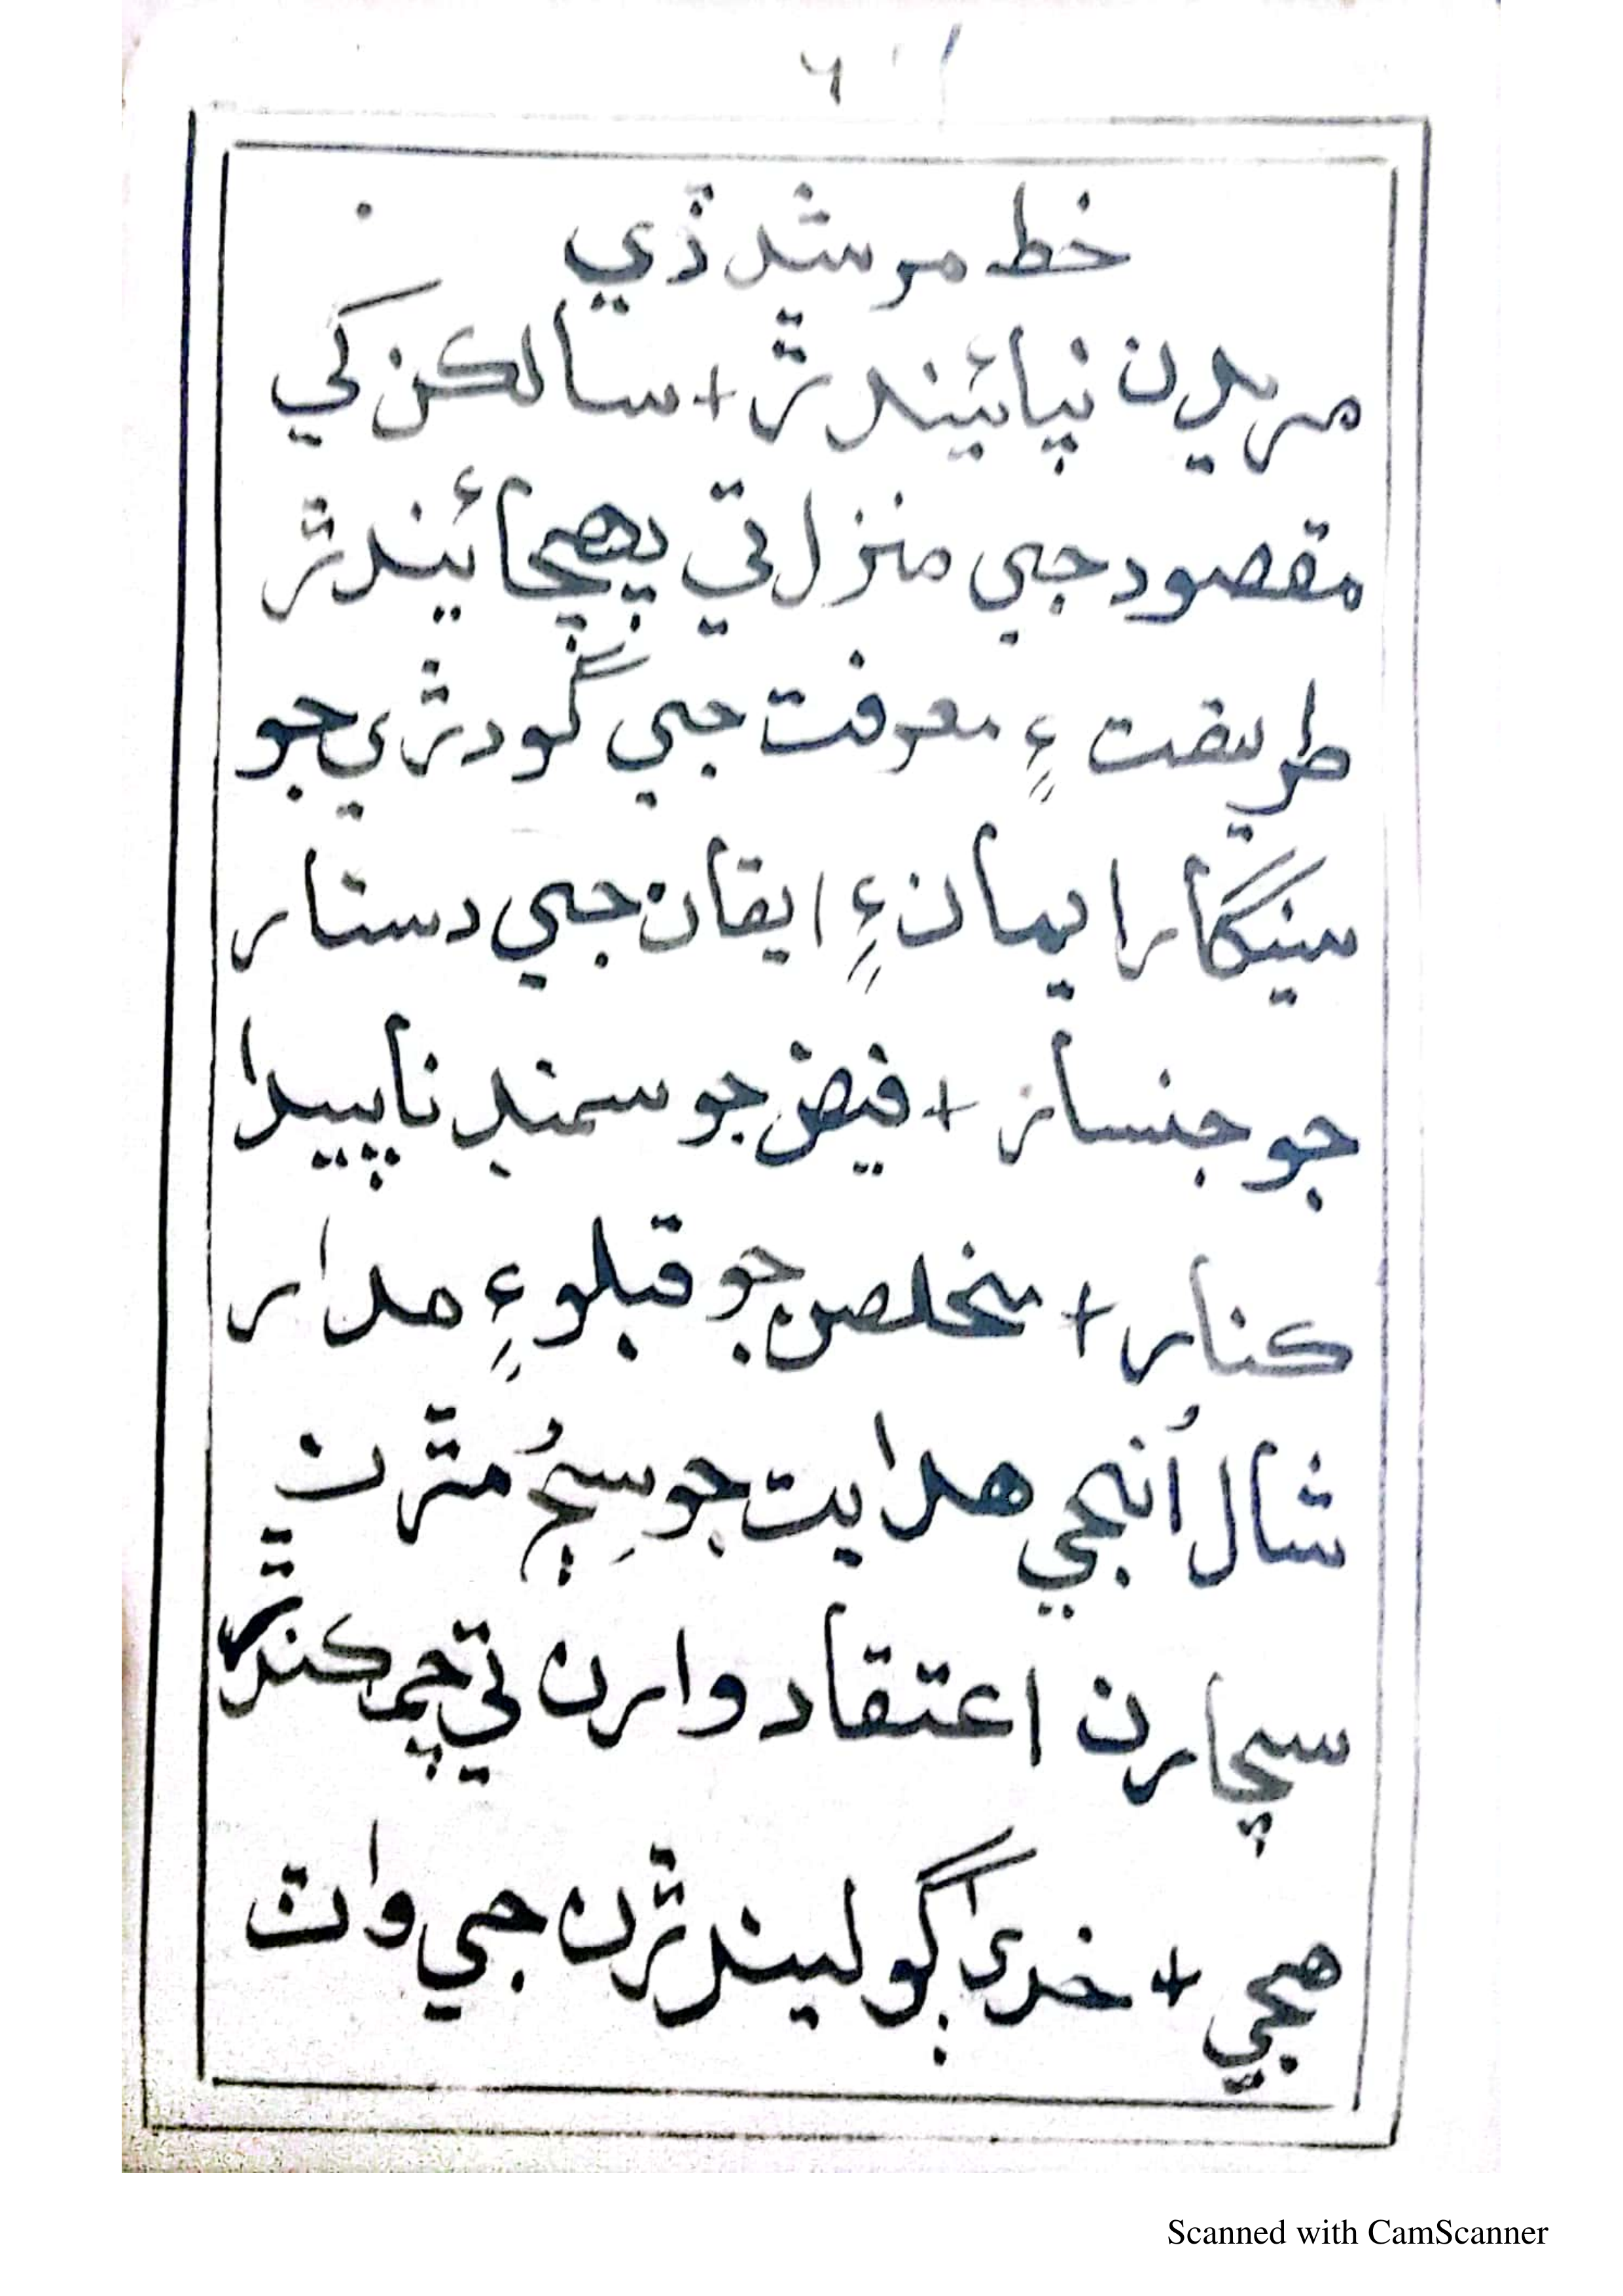 ٦
خط مرشد ڏي
مريدن نپائيندڙ + سالڪن کي
مقصود جي منزل تي پهچائيندڙ
طريقت ۽ معرفت جي گودڙي جو
سينگار ايمان ۽ ايقان جي دستار
جو جنسار + فيض جو سمنڊ ناپيدا
ڪنار + مخلصن جو قبلو ۽ مدار
شال اُنهجي هدايت جو سِجُ مٿڙن
سچارن اعتقاد وارن تي چمڪندڙ
هجي + خدا ڳوليندڙن جي واٽ
Scanned with CamScanner